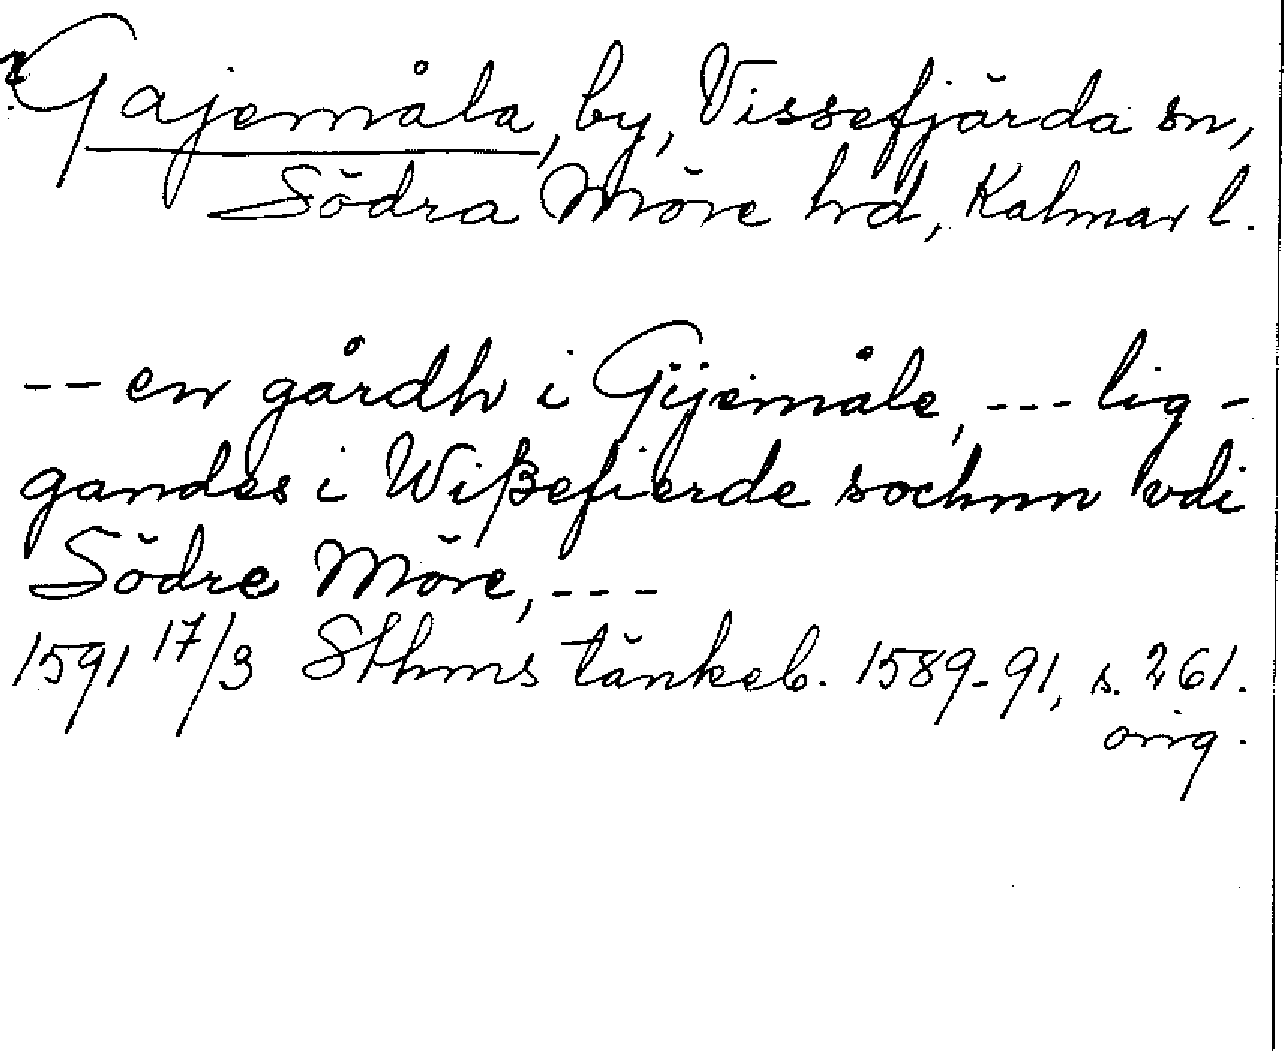 ? Gajemåla, by, Vissefjärda sn,
Södra Möre hd, Kalmar l.
-- en gårdh i Gijemåle, --- lig-
gandes i Wißefierde sochnn vdi
Södre Möre, ---
1591 17/3 Sthms tänkeb. 1589-91, s. 261.
orig.